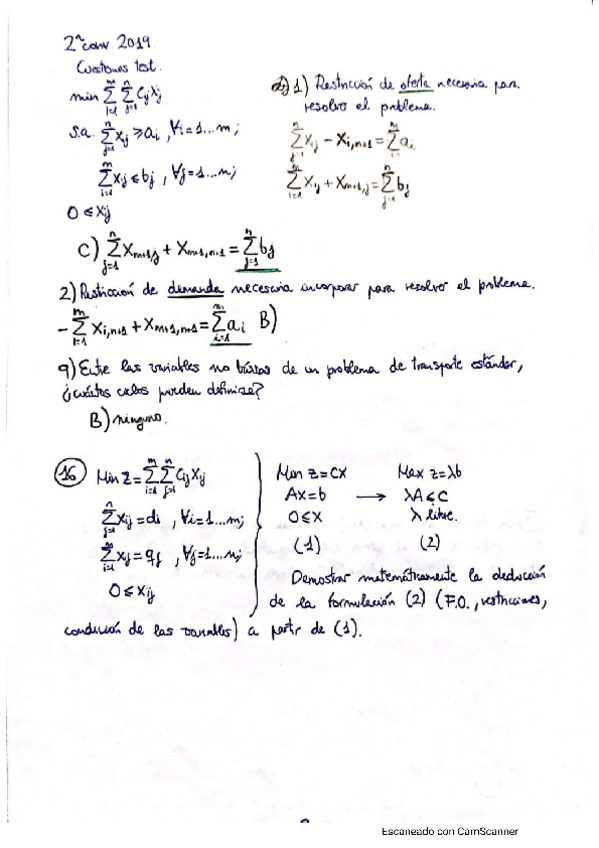 2ª conv 2019
Cuestiones test.
min Σ_{i=1}^{m} Σ_{j=1}^{n} Cij Xij
s.a. Σ_{j=1}^{n} Xij ≥ ai, ∀i=1...m;
Σ_{i=1}^{m} Xij ≤ bj, ∀j=1...n;
0 ≤ Xij
1) Restricción de oferta necesaria para
resolver el problema.
Σ_{j=1}^{n} Xij - Xi,n+1 = Σ_{i=1}^{m} ai
Σ_{i=1}^{m} Xij + Xm+1,j = Σ_{j=1}^{n} bj
C) Σ_{j=1}^{n} Xm+1,j + Xm+1,n+1 = Σ_{j=1}^{n} bj
2) Restricción de demanda necesaria incorporar para resolver el problema.
- Σ_{i=1}^{m} Xi,n+1 + Xm+1,n+1 = Σ_{i=1}^{m} ai B)
9) Entre las variables no básicas de un problema de transporte estándar,
¿cuántos ciclos pueden definirse?
B) ninguno.
16 Min Z = Σ_{i=1}^{m} Σ_{j=1}^{n} Cij Xij
Σ_{j=1}^{n} Xij = di, ∀i=1...m;
Σ_{i=1}^{m} Xij = qj, ∀j=1...n;
0 ≤ Xij
Min z=CX Max z=λb
AX=b → λA≤C
0≤X λ libre.
(1) (2)
Demostrar matemáticamente la deducción
de la formulación (2) (F.O., restricciones,
condición de las variables) a partir de (1).
Escaneado con CamScanner